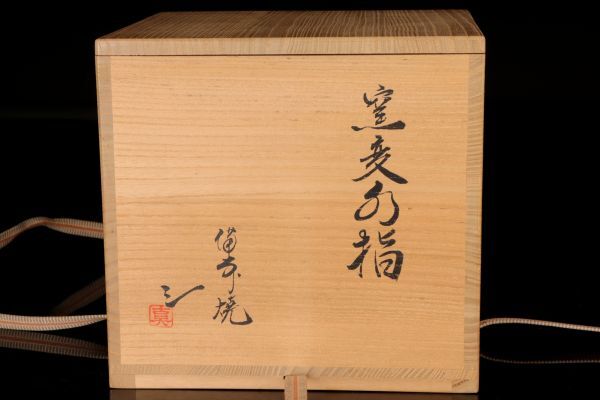 窯変水指
備前焼
三
真